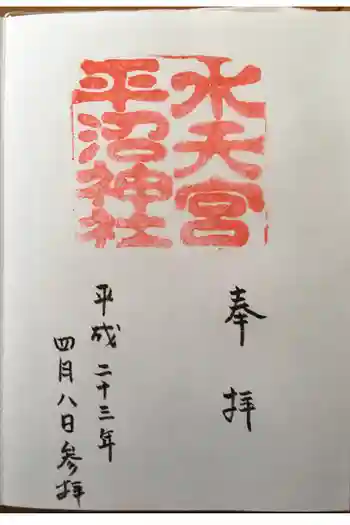 水天宮
平沼神社
奉拝
平成二十三年
四月八日参拝